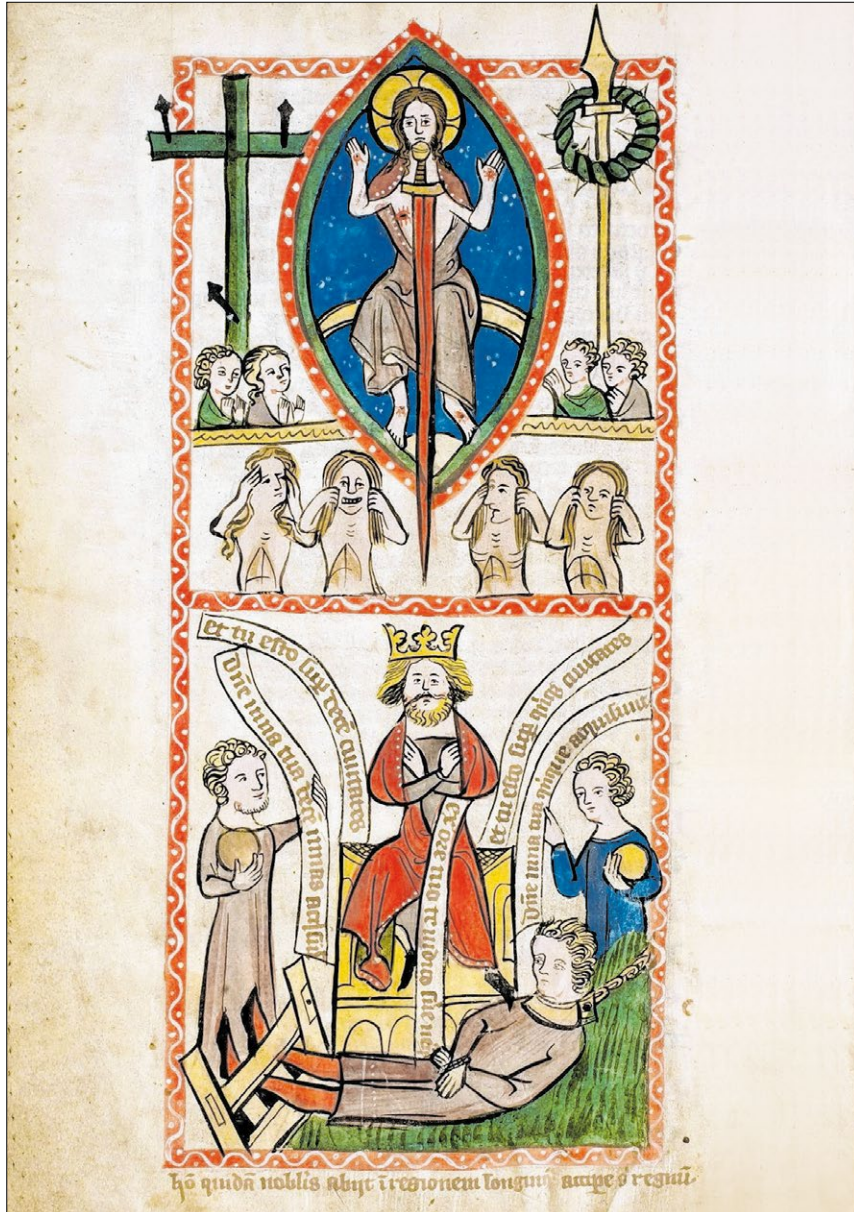 et tu esto sup decē ciuitates
Dn̄e mna tua decē mnas acisiuit
ex ore tuo te iudico serue neq̄
et tu esto sup qinq̄ ciuitates
Dn̄e mna tua qinque adquisiuit
hō quidā nobl'is abijt ī regionem longinq̄ accipe s' regnū.